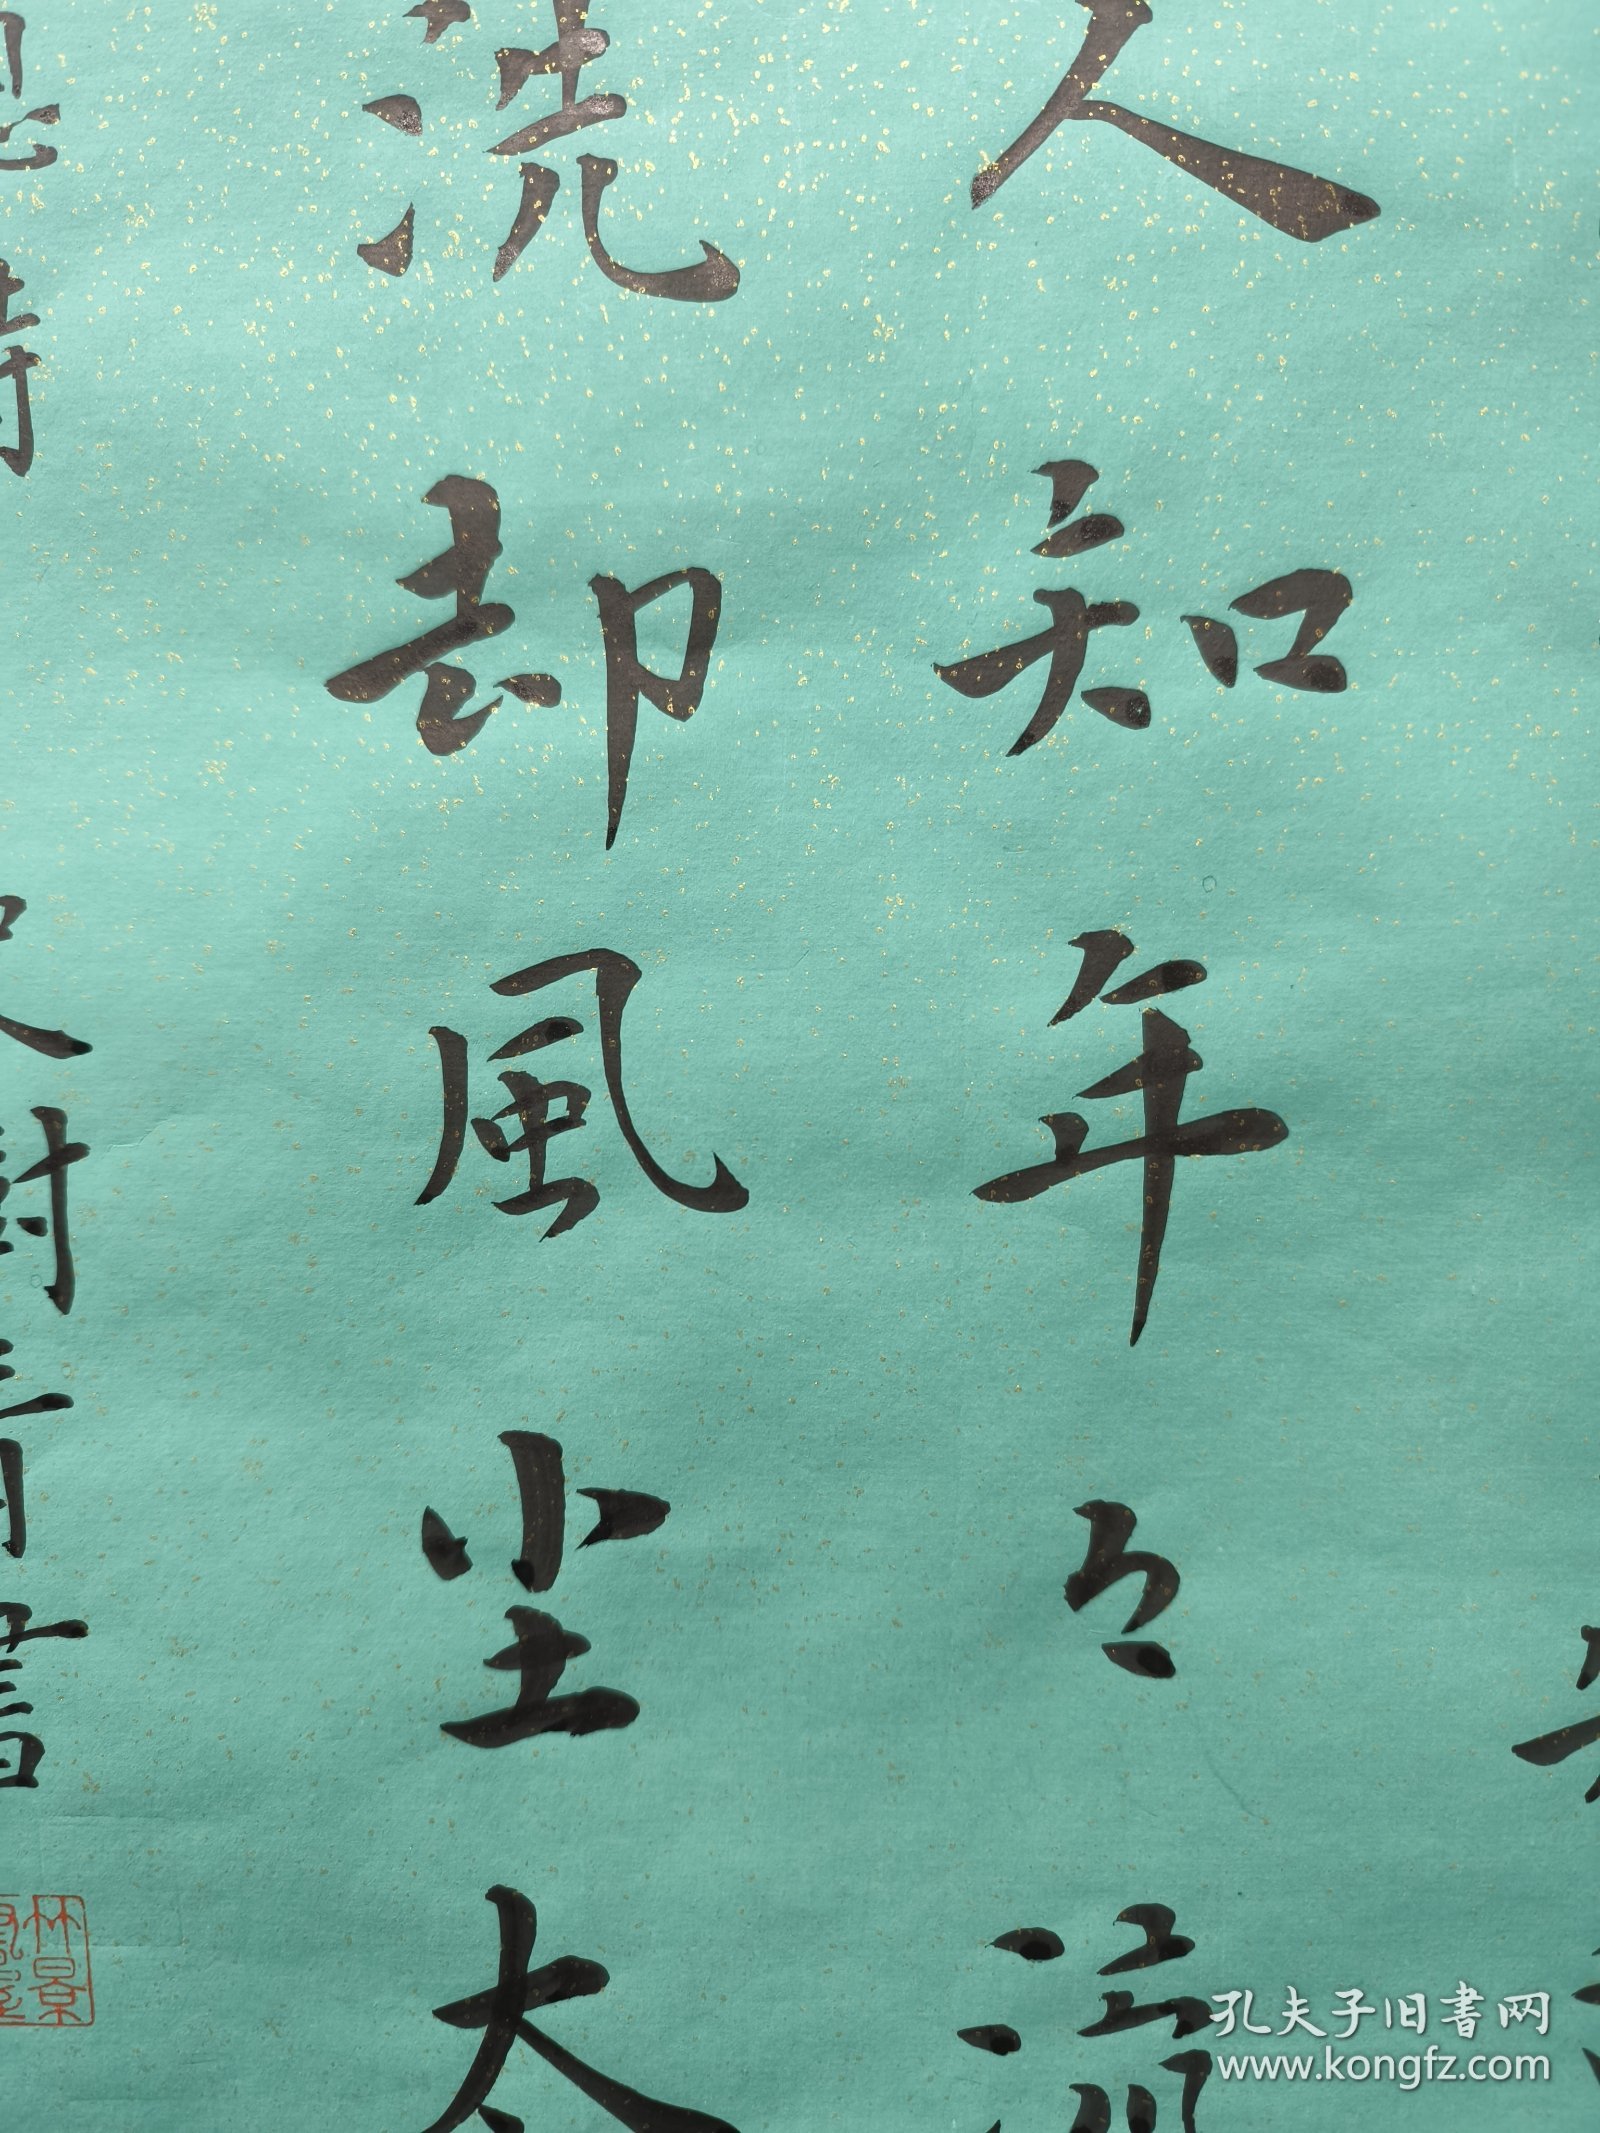 人知年々流
洗却風尘太
思
诗
樹青書
林景
孔夫子旧書网
www.kongfz.com